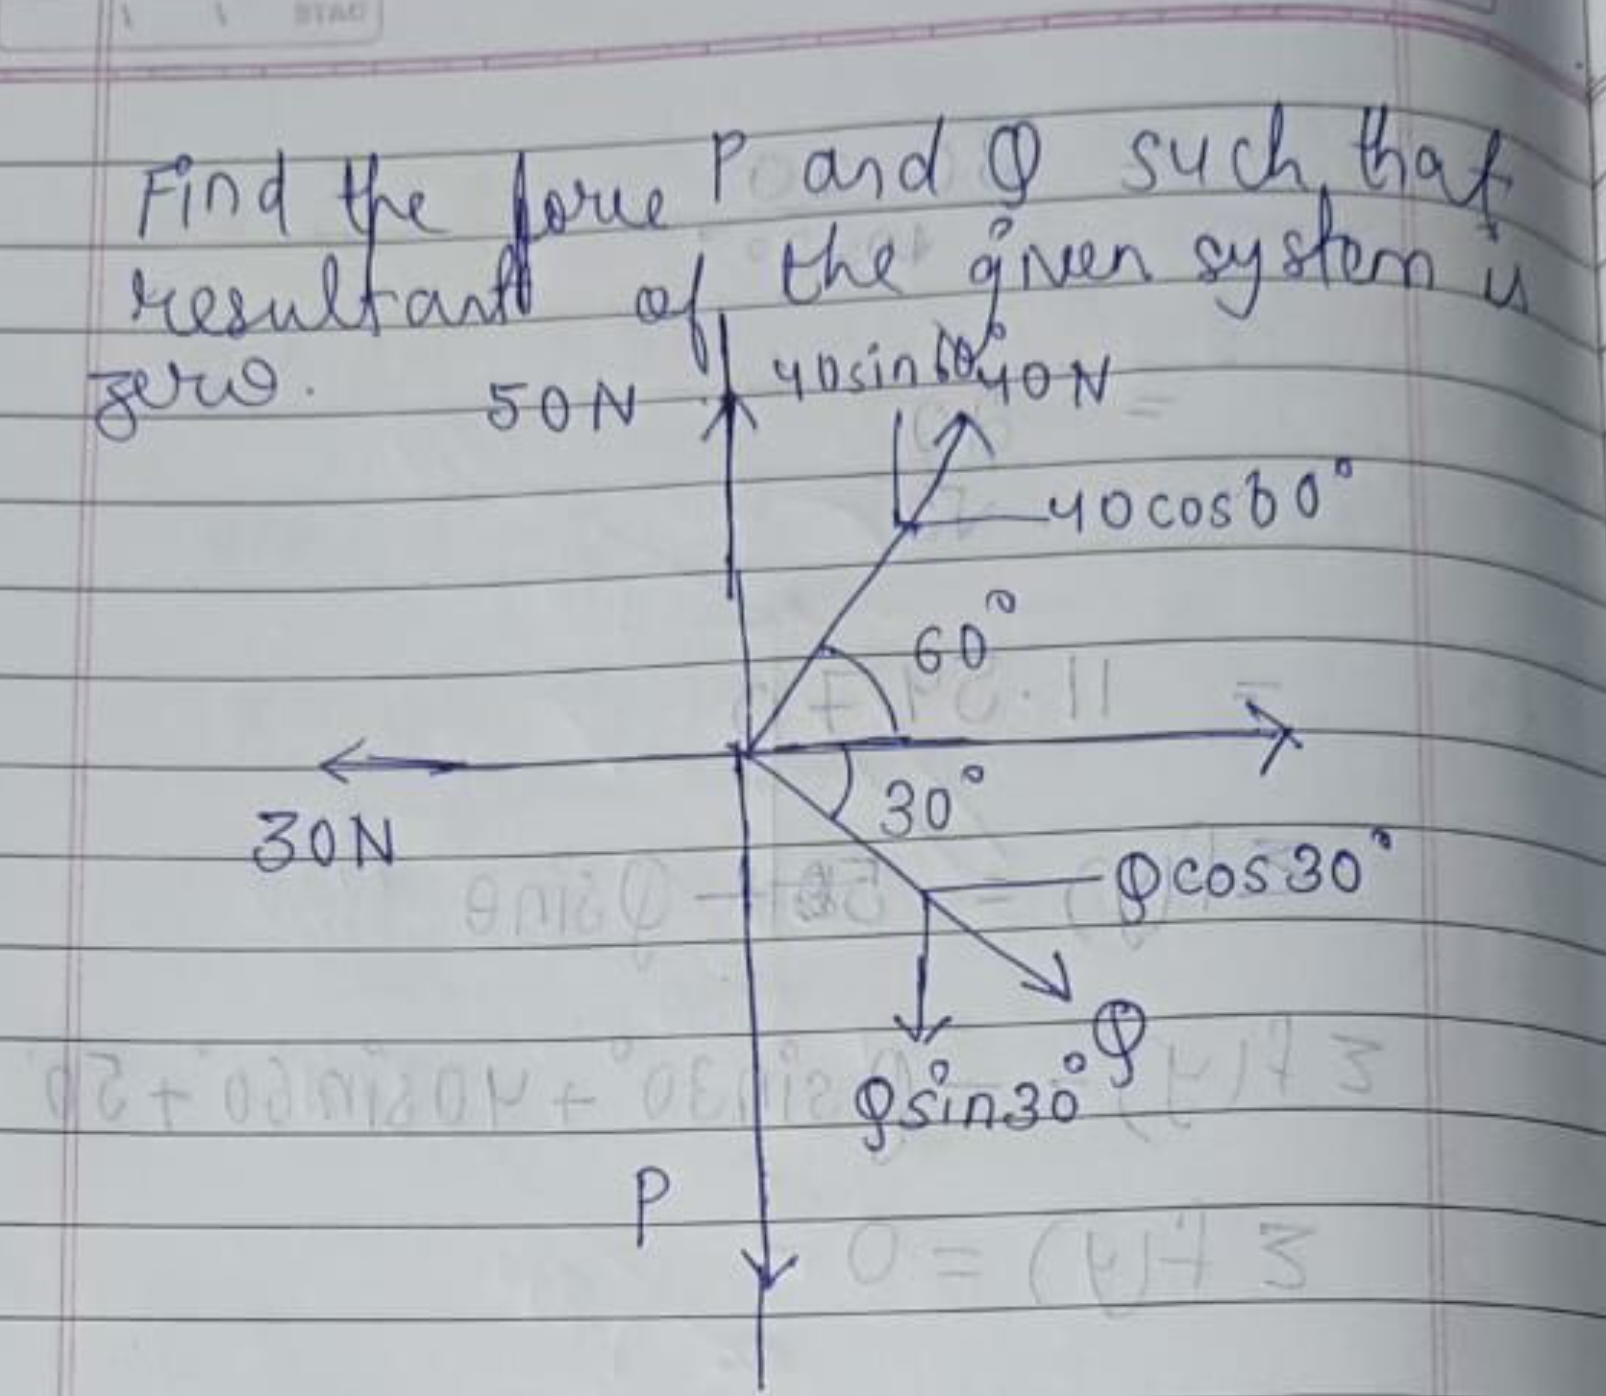 Find the force P and Q such that
resultant of the given system is
zero.
50N 40sin60° 40N
40cos60°
60°
30°
30N
Qcos30°
Q
Qsin30°
P